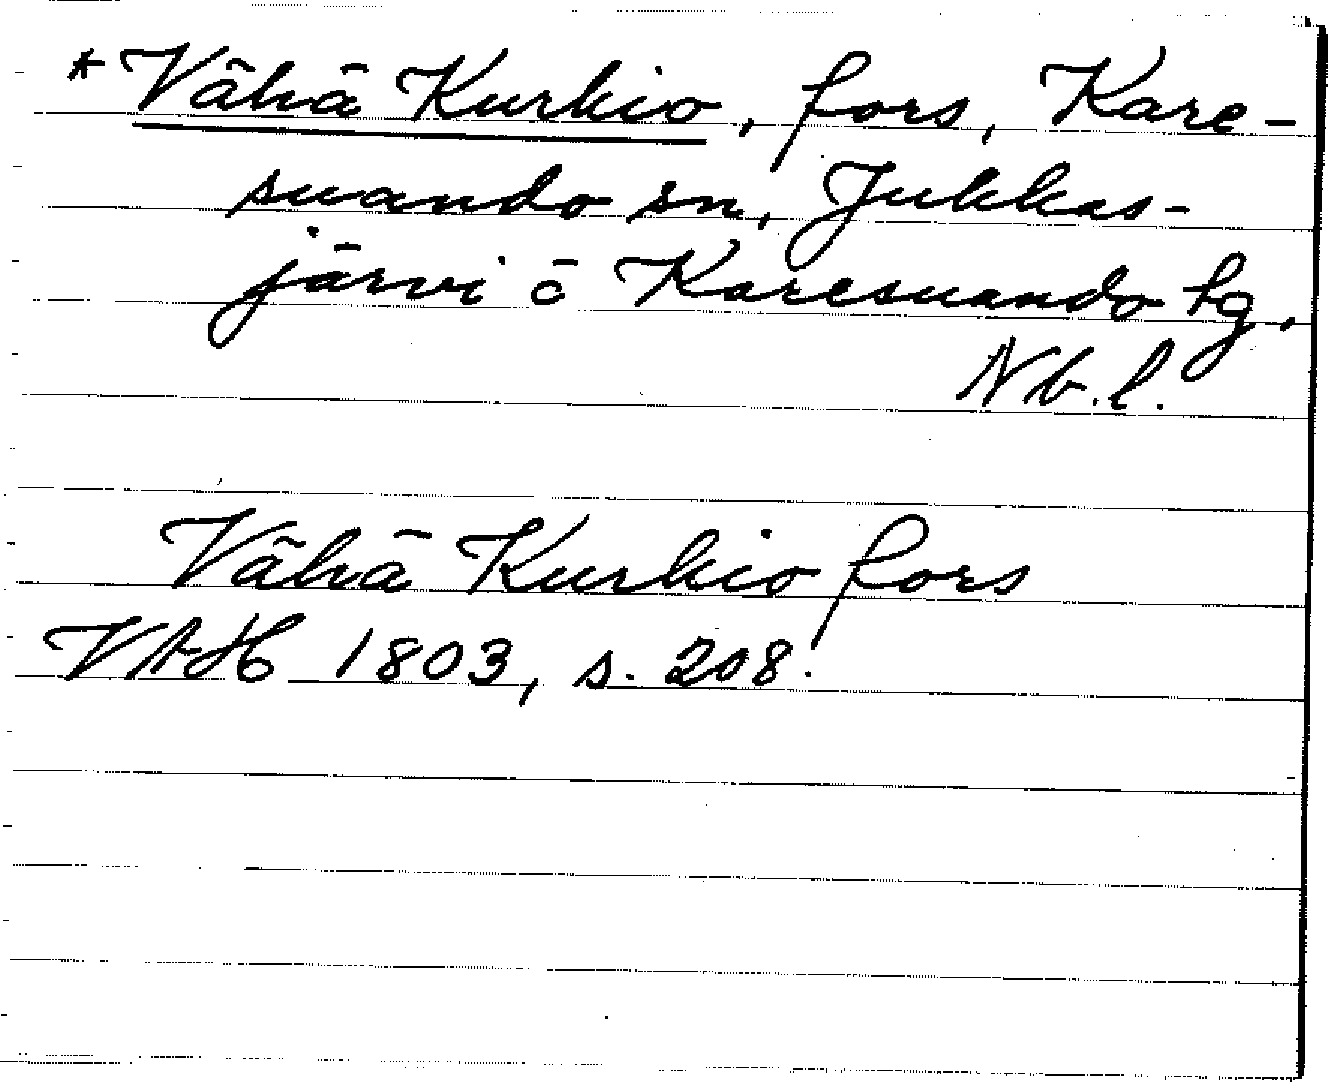 * Vähä Kurkio, fors, Kare-
suando sn, Jukkas-
järvi o Karesuando tg,
Nb.l.
Vähä Kurkio fors
VAH 1803, s. 208.